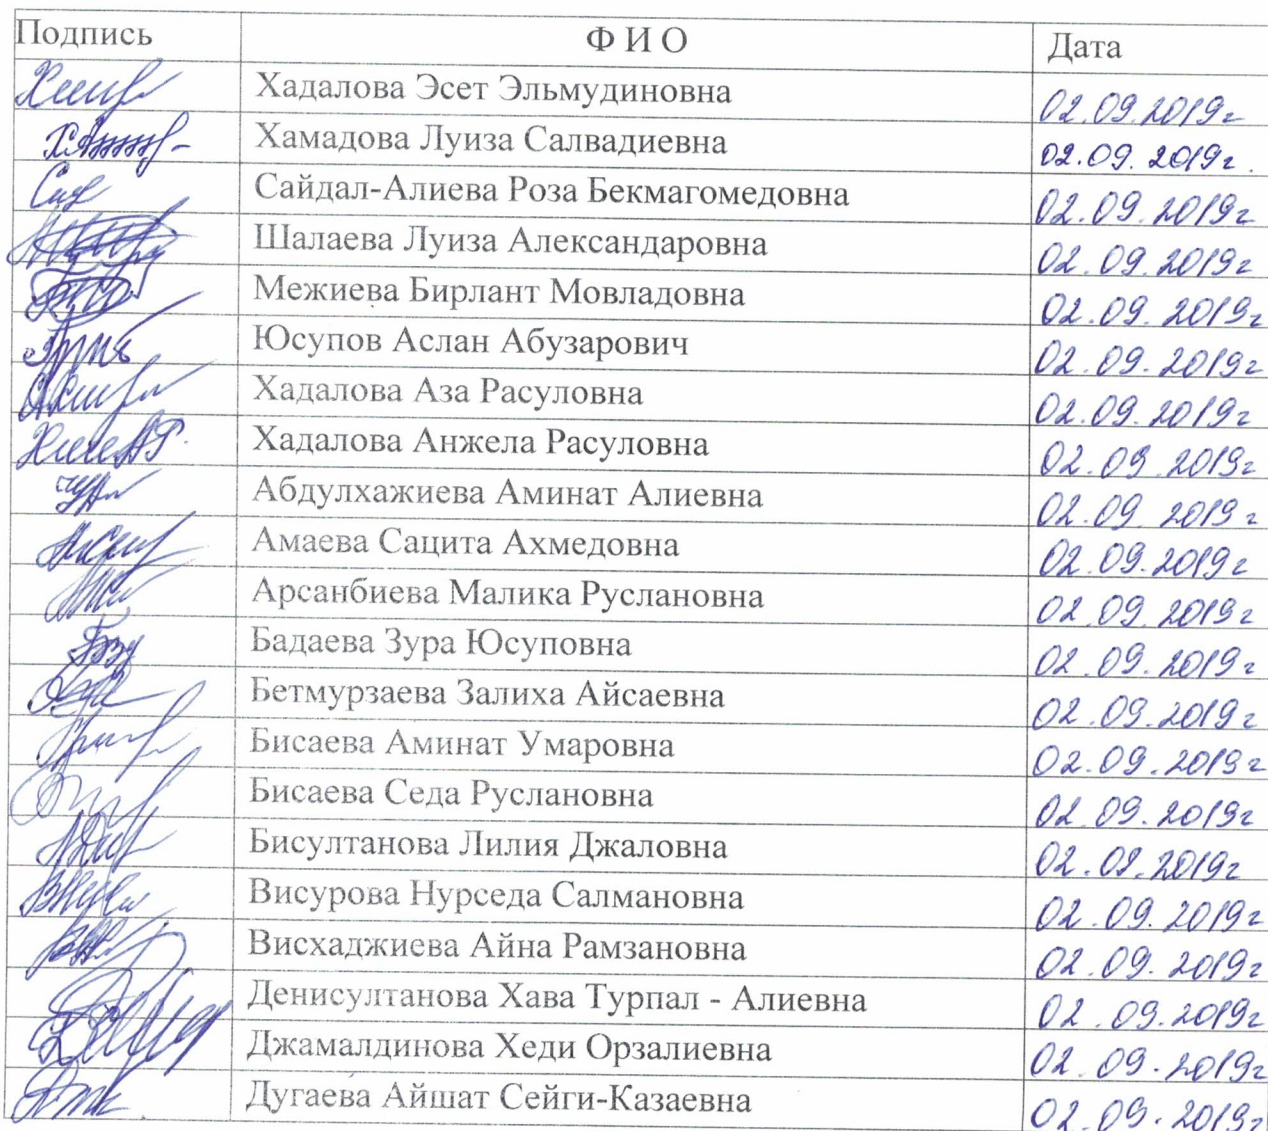 Подпись Ф И О Дата
Хадалова Эсет Эльмудиновна 02.09.2019г
Хамадова Луиза Салвадиевна 02.09.2019г.
Сайдал-Алиева Роза Бекмагомедовна 02.09.2019г
Шалаева Луиза Александаровна 02.09.2019г
Межиева Бирлант Мовладовна 02.09.2019г
Юсупов Аслан Абузарович 02.09.2019г
Хадалова Аза Расуловна 02.09.2019г
Хадалова Анжела Расуловна 02.09.2019г
Абдулхажиева Аминат Алиевна 02.09.2019г
Амаева Сацита Ахмедовна 02.09.2019г
Арсанбиева Малика Руслановна 02.09.2019г
Бадаева Зура Юсуповна 02.09.2019г
Бетмурзаева Залиха Айсаевна 02.09.2019г
Бисаева Аминат Умаровна 02.09.2019г
Бисаева Седа Руслановна 02.09.2019г
Бисултанова Лилия Джаловна 02.09.2019г
Висурова Нурседа Салмановна 02.09.2019г
Висхаджиева Айна Рамзановна 02.09.2019г
Денисултанова Хава Турпал - Алиевна 02.09.2019г
Джамалдинова Хеди Орзалиевна 02.09.2019г
Дугаева Айшат Сейги-Казаевна 02.09.2019г